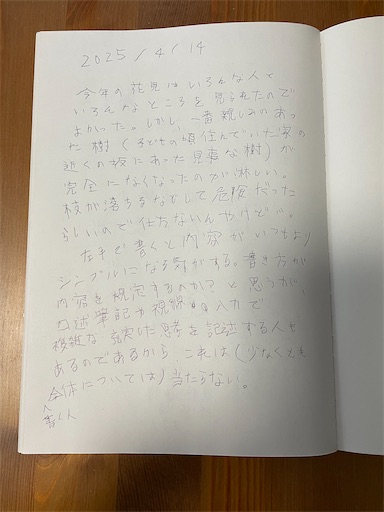 2025/4/14
今年の花見はいろんな人と
いろんなところを見られたので
よかった。しかし、一番親しみのあっ
た樹(子どもの頃住んでいた家の
近くの坂にあった見事な樹)が
完全になくなったのが淋しい。
枝が落ちるなどして危険だった
らしいので仕方ないんやけど…。
左手で書くと内容がいつもより
シンプルになる気がする。書き方が
内容を規定するのか?と思うが、
口述筆記や視線入力で
複雑な充実した思考を記述する人も
あるのであるから これは(少なくとも
全体については)当たらない。
書く人